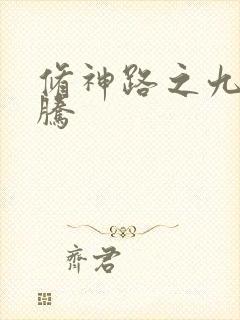 脩神路之九
騰
齊君